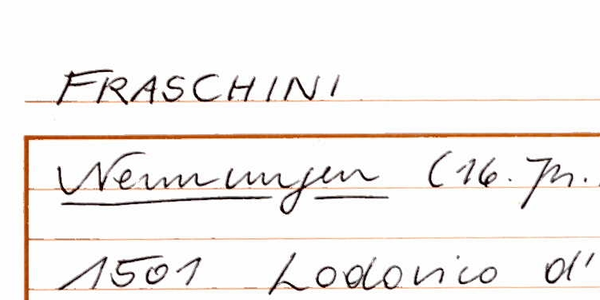 FRASCHINI
Nennungen (16. Jh.
1501 Lodovico d'